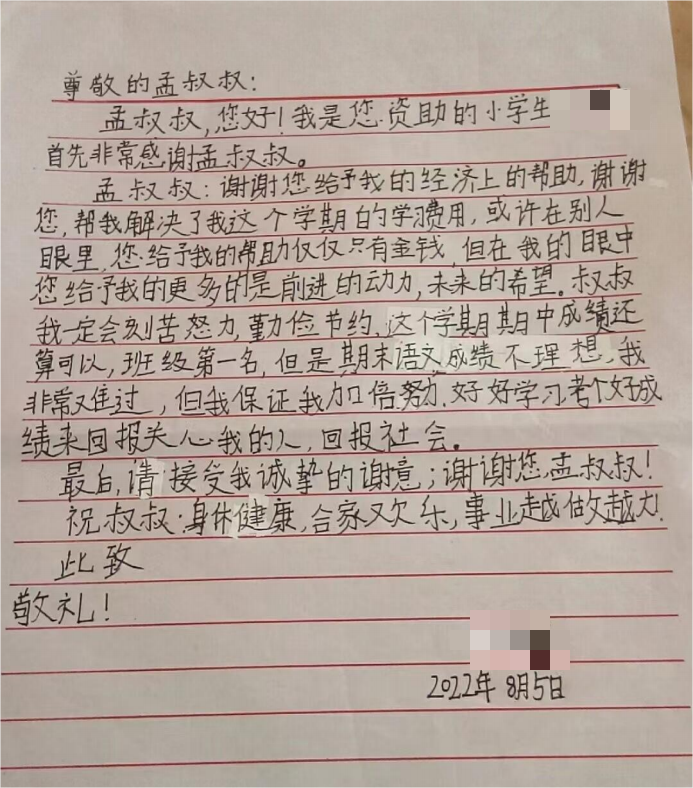 尊敬的孟叔叔：
孟叔叔，您好！我是您资助的小学生
首先非常感谢孟叔叔。
孟叔叔：谢谢您给予我的经济上的帮助，谢谢
您，帮我解决了我这个学期的学习费用，或许在别人
眼里，您给予我的帮助仅仅只有金钱，但在我的眼中
您给予我的更多的是前进的动力，未来的希望。叔叔
我一定会刻苦努力，勤俭节约，这个学期期中成绩还
算可以，班级第一名，但是期末语文成绩不理想，我
非常难过，但我保证我加倍努力，好好学习考个好成
绩来回报关心我的人，回报社会。
最后，请接受我诚挚的谢意；谢谢您，孟叔叔！
祝叔叔：身体健康，合家欢乐，事业越做越大！
此致
敬礼！
2022年8月5日